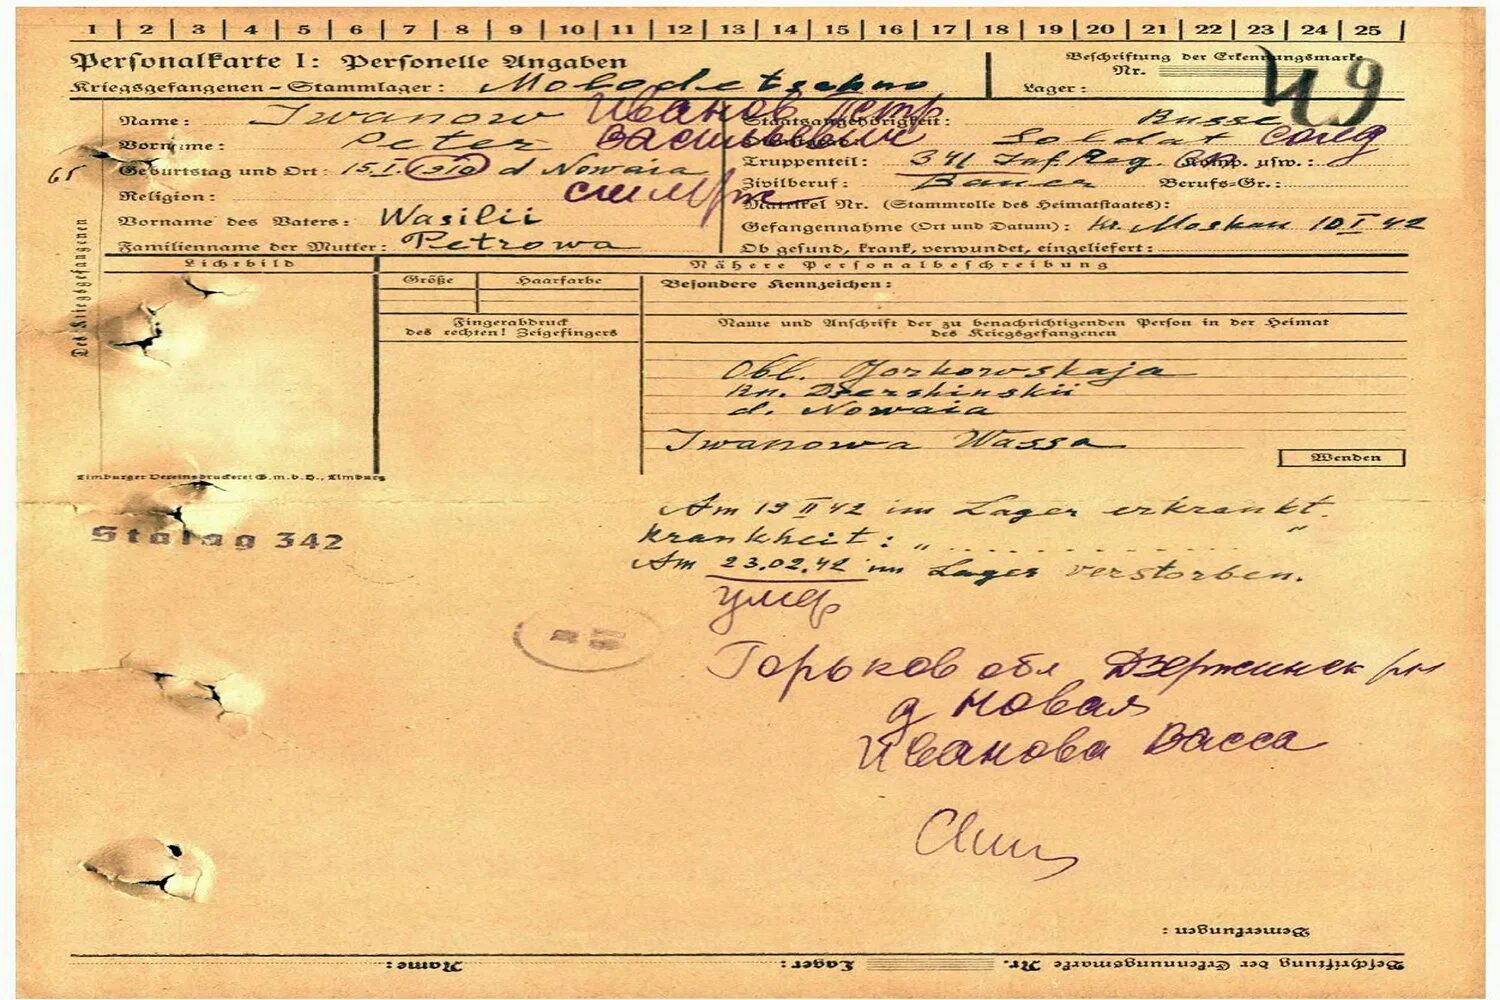 1 | 2 | 3 | 4 | 5 | 6 | 7 | 8 | 9 | 10 | 11 | 12 | 13 | 14 | 15 | 16 | 17 | 18 | 19 | 20 | 21 | 22 | 23 | 24 | 25
Personalkarte I: Personelle Angaben
Kriegsgefangenen-Stammlager: Molodetschno
Beschriftung der Erkennungsmarke
Nr.
Lager:
49
Name: Iwanow Иванов Петр
Vorname: Peter Васильевич
65
Geburtstag und Ort: 15.I. 1910 d Nowaia
Religion:
Vorname des Vaters: Wasilii
Familienname der Mutter: Petrowa
Staatsangehörigkeit: Russe
Soldat солд
Truppenteil: 341 Inf. Reg. Komp. usw.:
Zivilberuf: Bauer Berufs-Gr.:
Matrikel Nr. (Stammrolle des Heimatstaates):
Gefangennahme (Ort und Datum): Kr. Moskau 10 I 42
Ob gesund, krank, verwundet, eingeliefert:
Des Kriegsgefangenen
Lichtbild
Nähere Personalbeschreibung
Größe
Haarfarbe
Besondere Kennzeichen:
Fingerabdruck
des rechten! Zeigefingers
Name und Anschrift der zu benachrichtigenden Person in der Heimat
des Kriegsgefangenen
Obl. Gorkowskaja
Rn. Dsershinskii
d. Nowaia
Iwanowa Wassa
Wenden
Limburger Vereinsdruckerei G.m.b.H., Limburg
Stalag 342
Am 19 II 42 im Lager erkrankt.
Krankheit: „ . . . . . . . . . . "
Am 23.02.42 im Lager verstorben.
умер
Горьков обл Дзержинск рн
д Новая
Иванова Васса
Bemerkungen:
Beschriftung der Erkennungsmarke Nr.
Lager:
Name: